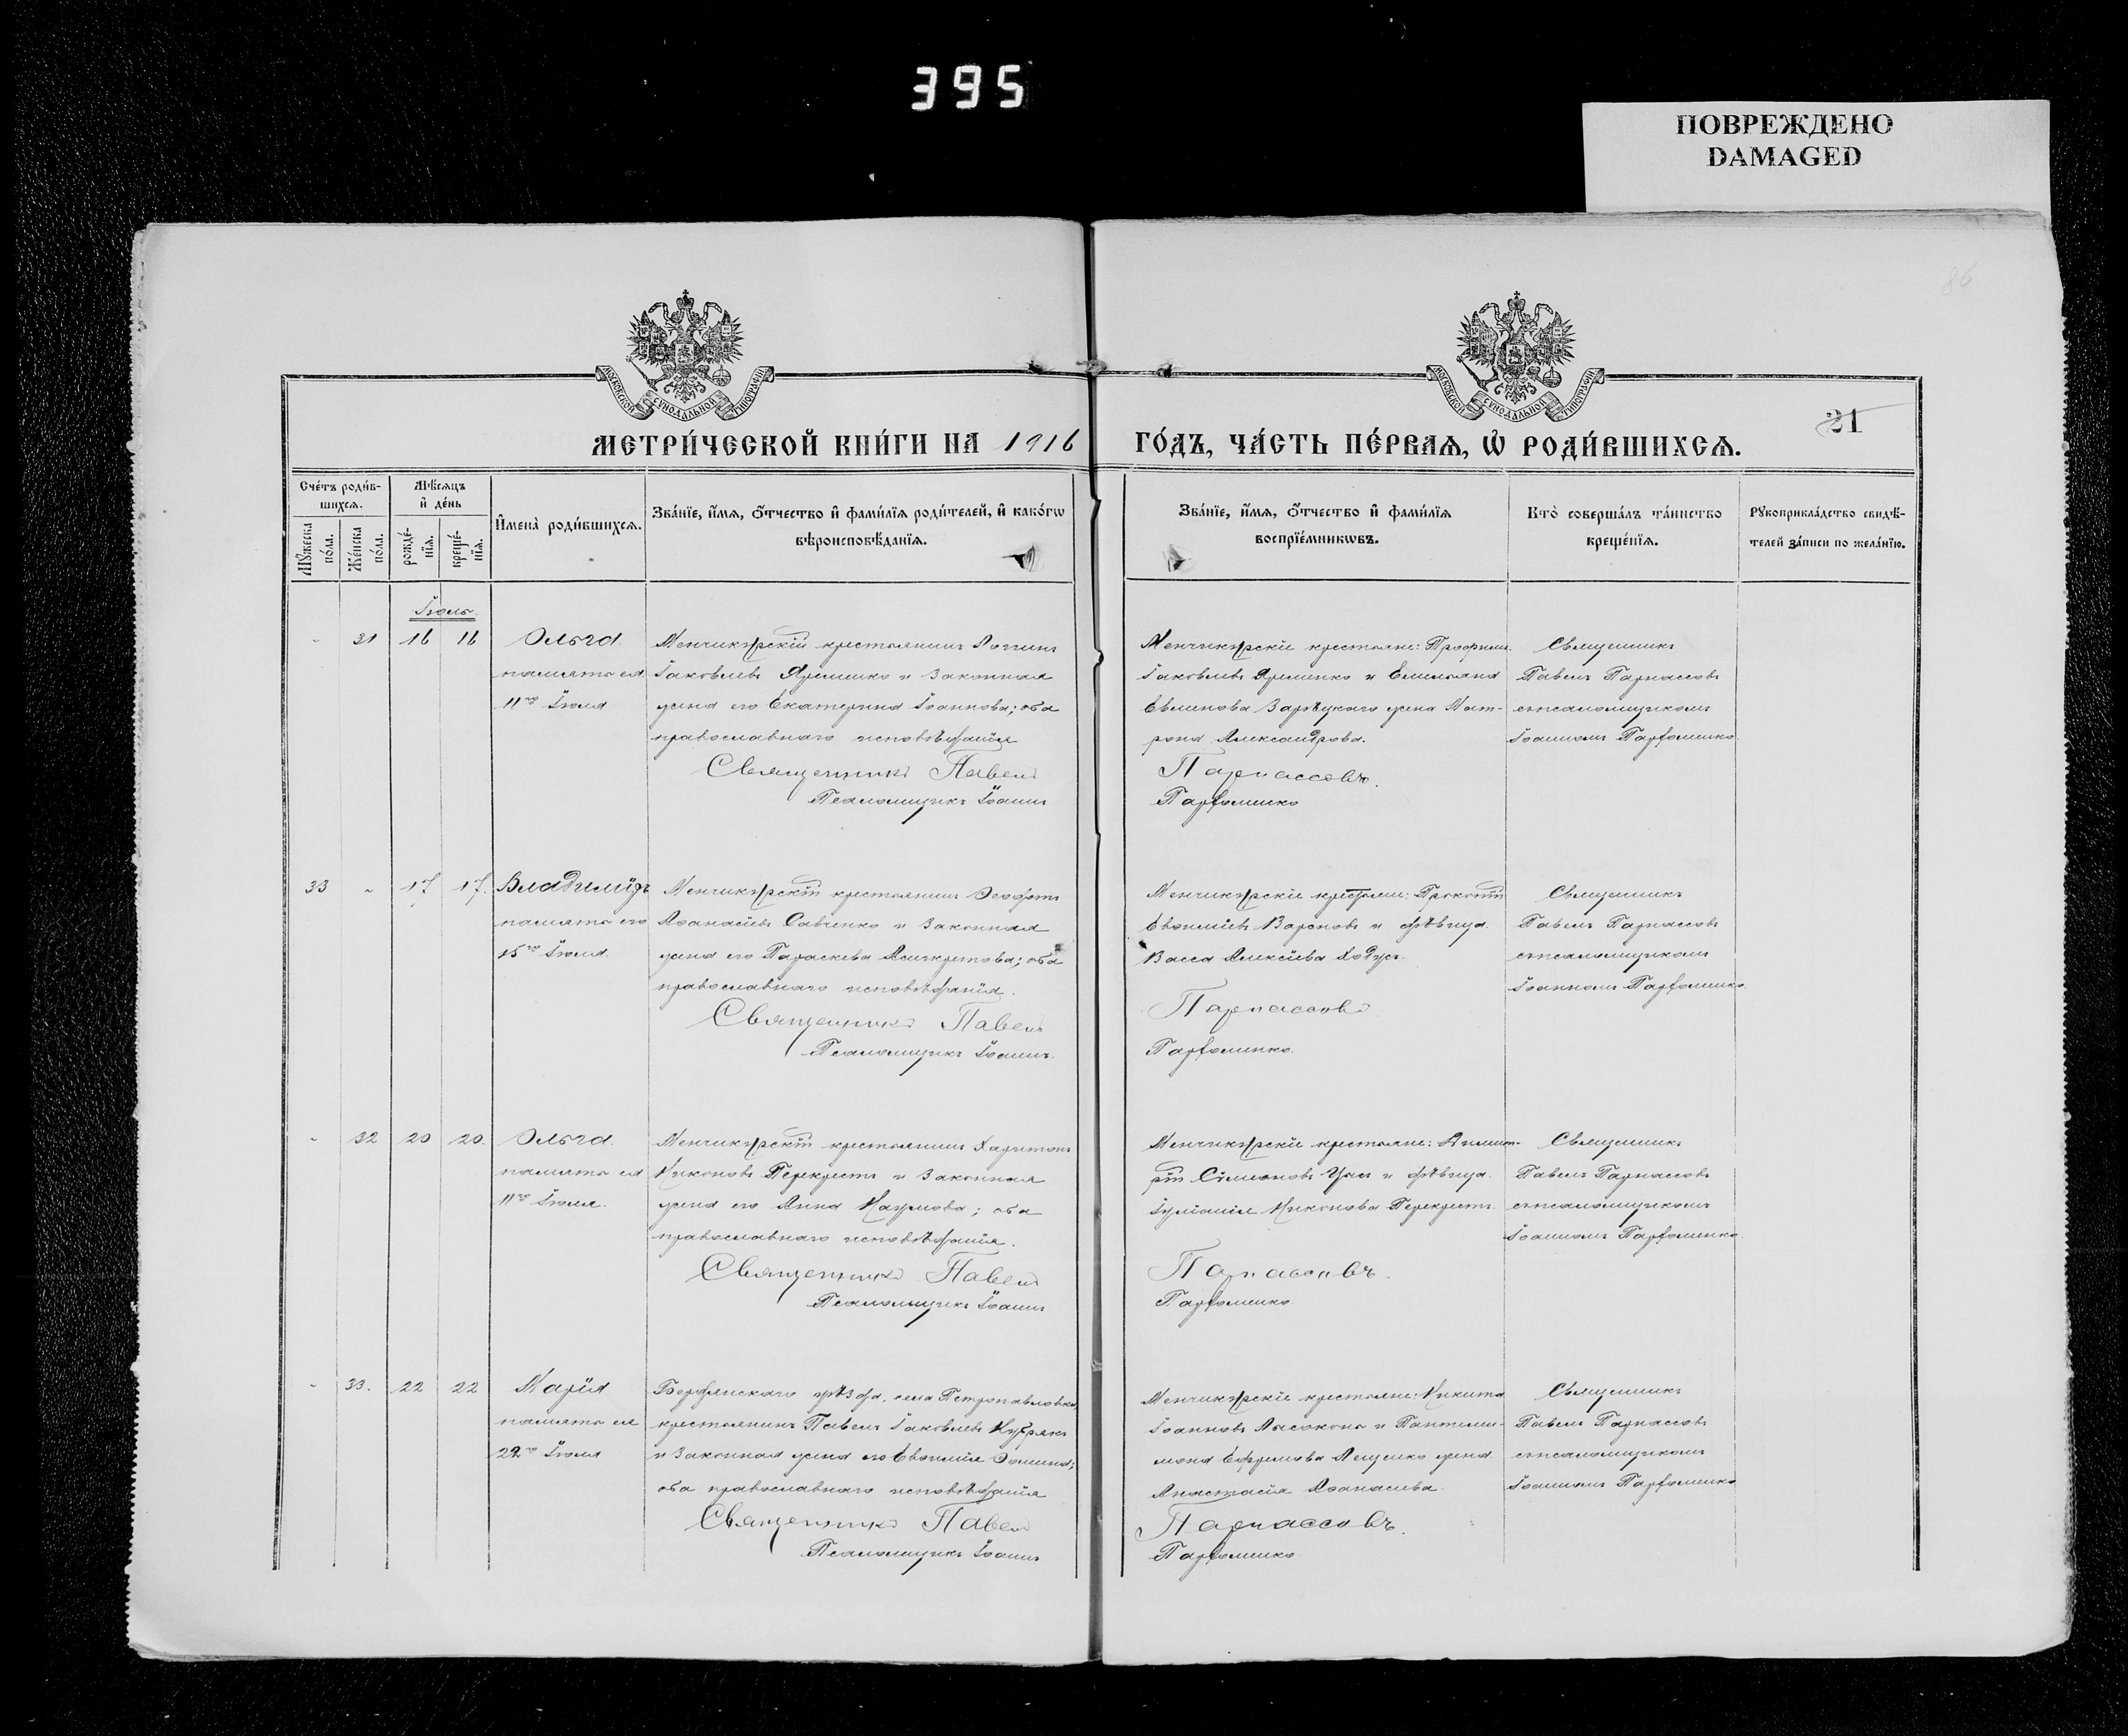 395
ПОВРЕЖДЕНО
DAMAGED
86
МОСКОВСКОЙ СѴНОДАЛЬНОЙ ТИПОГРАФІИ
МОСКОВСКОЙ СѴНОДАЛЬНОЙ ТИПОГРАФІИ
21
МЕТРИ́ЧЕСКОЙ КНИ́ГИ НА 1916 ГО́ДЪ, ЧА́СТЬ ПЕ́РВАѦ, Ѡ҆ РОДИ́ВШИХСѦ.
Сче́тъ роди́в-
шихсѧ.
Мꙋ́жеска по́ла.
Же́нска по́ла.
Мѣ́сѧцъ
и҆ де́нь
рожде́-
нїѧ.
креще́-
нїѧ.
И҆мена̀ роди́вшихсѧ.
Зва́нїе, и҆́мѧ, ѻ҆́тчество и҆ фами́лїѧ роди́телей, и҆ како́гѡ
вѣроисповѣ́данїѧ.
Зва́нїе, и҆́мѧ, ѻ҆́тчество и҆ фами́лїѧ
воспрїе́мникѡвъ.
Кто̀ соверша́лъ та́инство
креще́нїѧ.
Рꙋкоприкла́дство свидѣ́-
телей за́писи по жела́нїю.
Іюль.
31 16 16 Ольга
память ея
11го Іюля
Менчикурскій крестьянинъ Логинъ
Іаковлевъ Яременко и законная
жена его Екатерина Іоаннова; оба
православнаго исповѣданія
Священникъ Павелъ
Псаломщикъ Іоаннъ
Менчикурскіе крестьяне: Трофимъ
Іаковлевъ Яременко и Емельяна
Евменова Зарѣцкаго жена Мат-
рона Александрова.
Парнассовъ.
Парфоменко
Священникъ
Павелъ Парнассовъ
съ псаломщикомъ
Іоанномъ Парфоменко.
33 17 17. Владиміръ
память его
15го Іюля
Менчикурскій крестьянинъ Ѳеофанъ
Аѳанасіевъ Савченко и законная
жена его Параскева Асигкритова; оба
православнаго исповѣданія.
Священникъ Павелъ
Псаломщикъ Іоаннъ.
Менчикурскіе крестьяне: Прокопій
Евѳиміевъ и дѣвица
Васса Алексіева Ходусъ.
Парнассовъ
Парфоменко.
Священникъ
Павелъ Парнассовъ
съ псаломщикомъ
Іоанномъ Парфоменко.
32 20 20. Ольга.
память ея
11го Іюля.
Менчикурскій крестьянинъ Харитонъ
Никоновъ Перекрестъ и законная
жена его Анна Наумова; оба
православнаго исповѣданія.
Священникъ Павелъ
Псаломщикъ Іоаннъ
Менчикурскіе крестьяне: Димит-
рій Сімеоновъ и дѣвица
Іуліанія Никонова Перекрестъ.
Парнассовъ.
Парфоменко
Священникъ
Павелъ Парнассовъ
съ псаломщикомъ
Іоанномъ Парфоменко
33. 22 22 Марія
память ея
22го Іюля
Бердянскаго уѣзда, села Петропавловки
крестьянинъ Павелъ Іаковлевъ
и законная жена его Евѳимія Ѳомина;
оба православнаго исповѣданія
Священникъ Павелъ
Псаломщикъ Іоаннъ
Менчикурскіе крестьяне: Никита
Іоанновъ Лысоконь и Пантелей-
мона Ефремова Лещенко жена
Анастасія Аѳанасіева.
Парнассовъ.
Парфоменко.
Священникъ
Павелъ Парнассовъ
съ псаломщикомъ
Іоанномъ Парфоменко